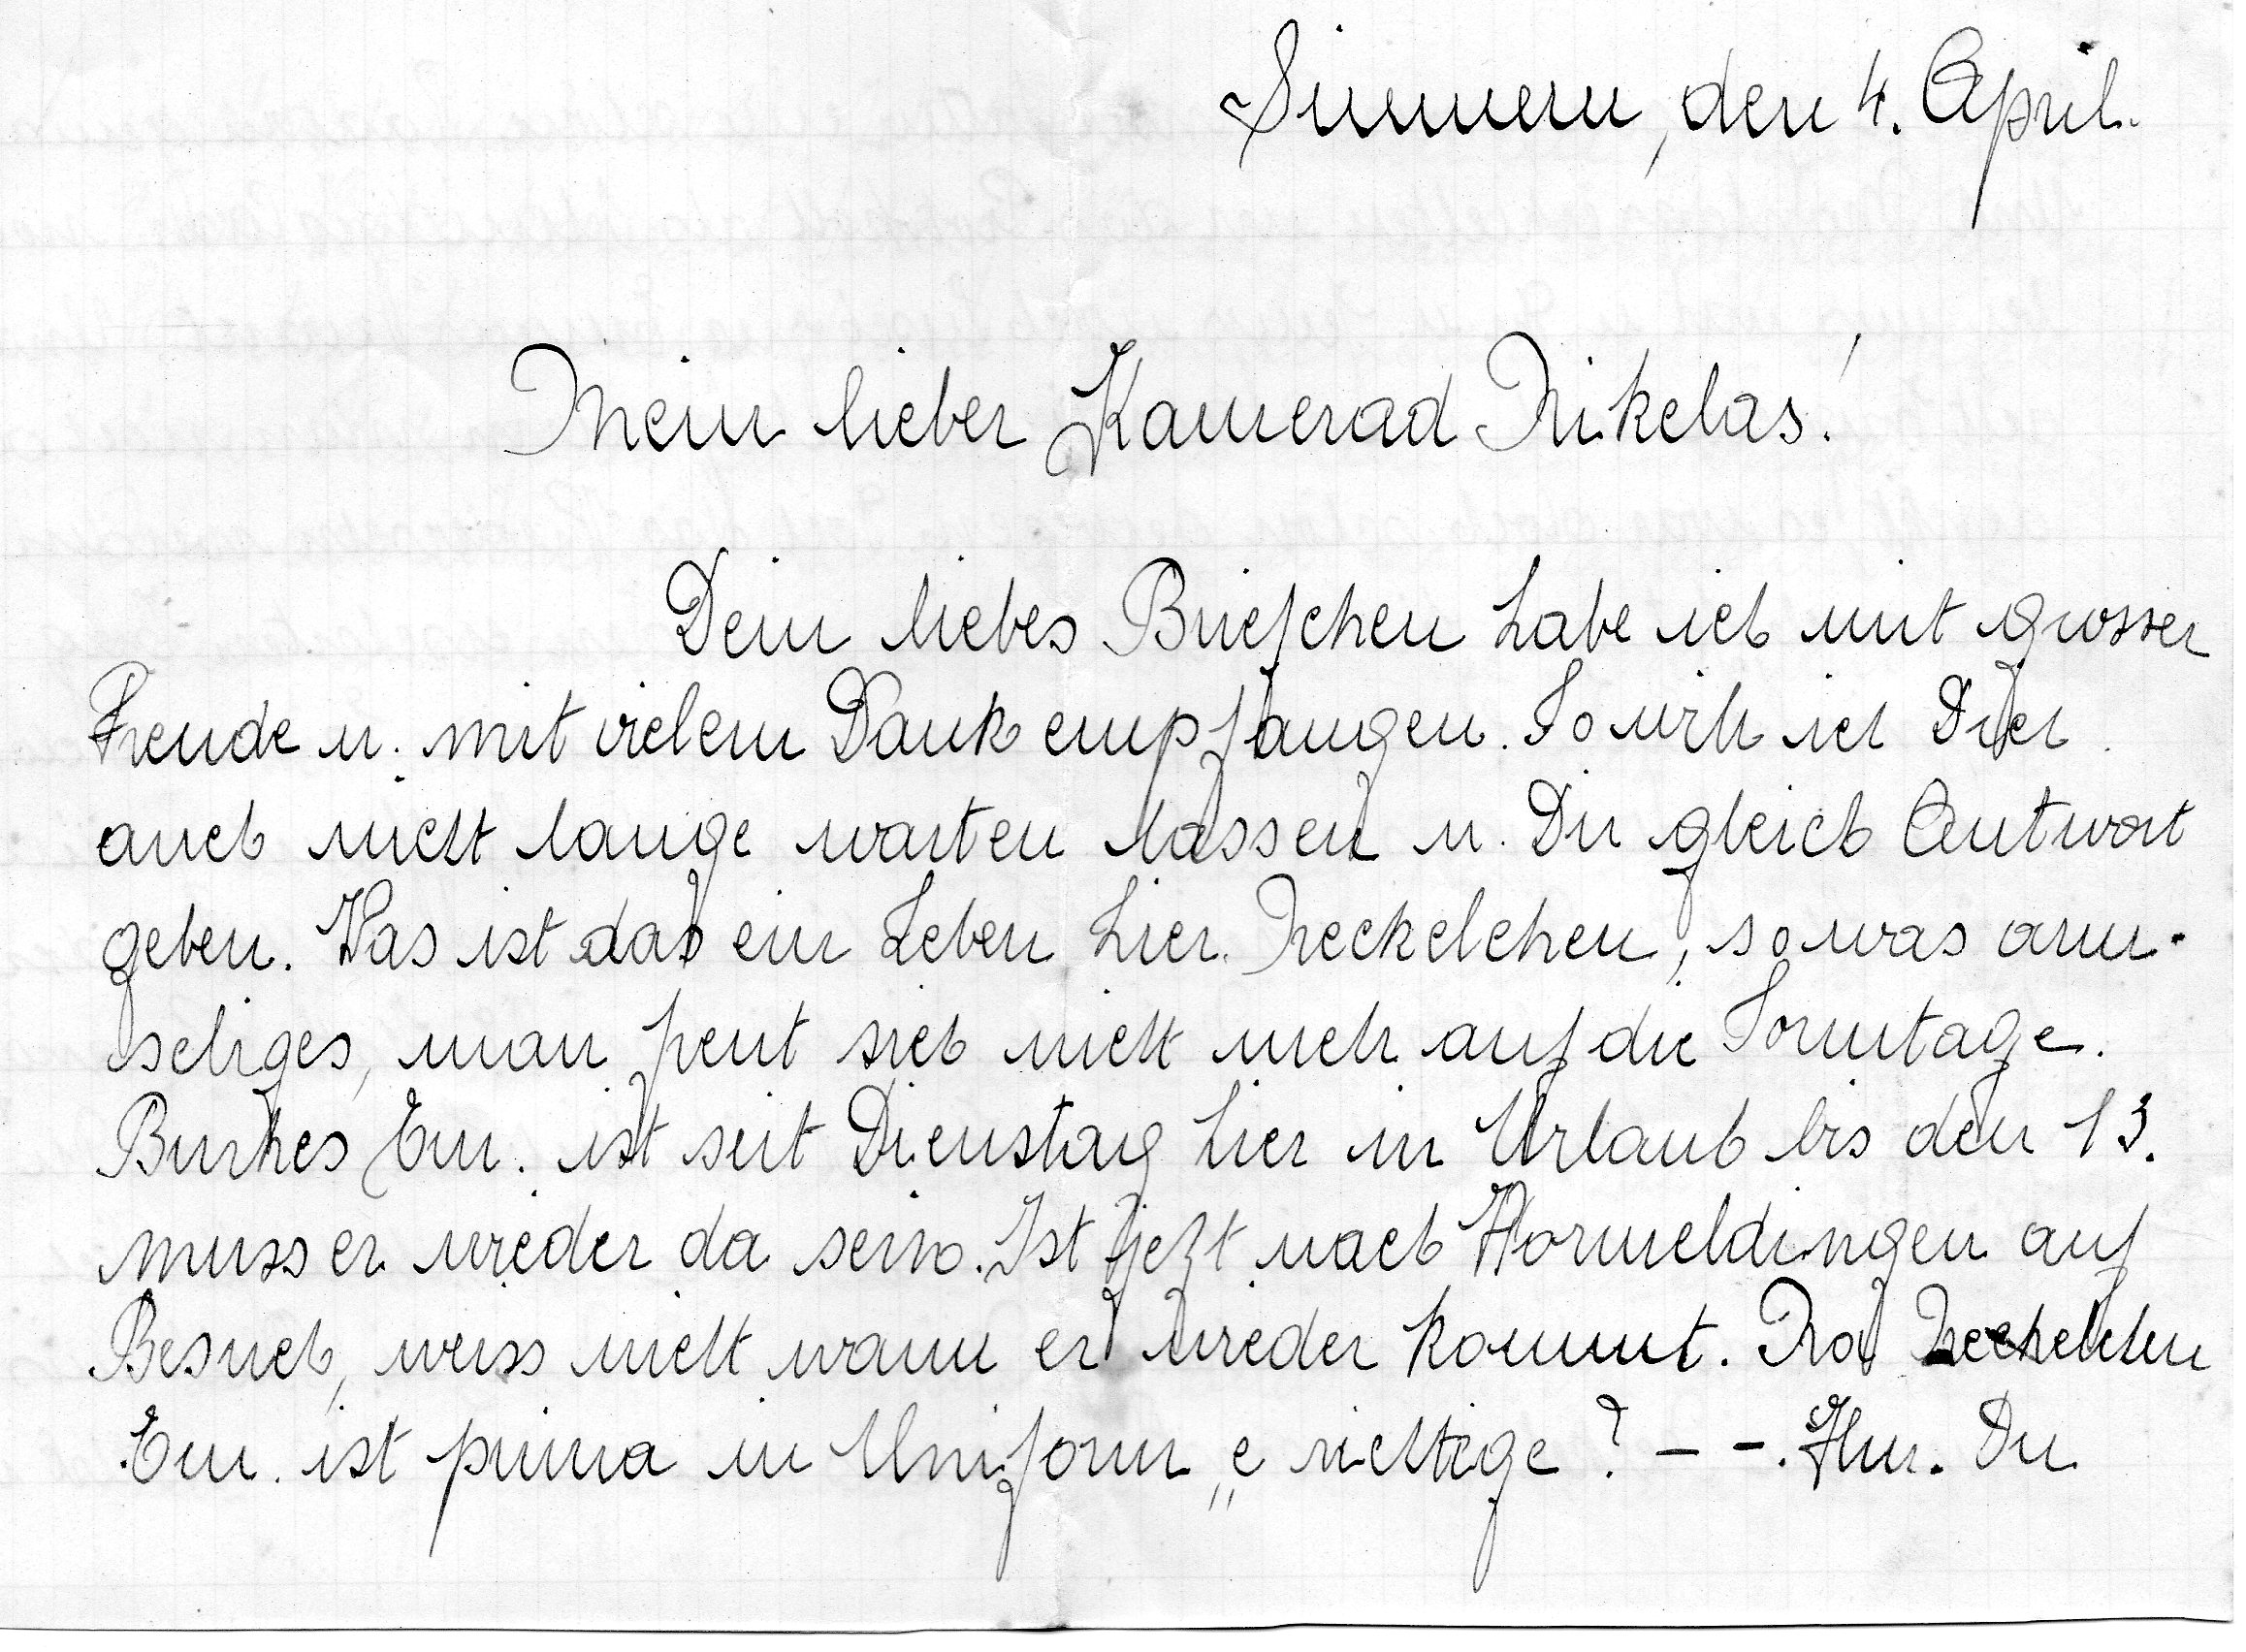 Simmern, den 4. April.
Mein lieber Kamerad Nikelas!
Dein liebes Briefchen habe ich mit grosser
Freude u. mit vielem Dank empfangen. So will ich Dich
auch nicht lange warten lassen u. Dir gleich Antwort
geben. Was ist das ein Leben hier Neckelchen, so was arm-
seliges, man freut sich nicht mehr auf die Sonntage.
Em. ist seit Dienstag hier in Urlaub bis den 13.
muss er wieder da sein. Ist jetzt nach Hormeldingen auf
Besuch, weiss nicht wann er wieder kommt. Na Neckelchen
Em. ist prima in Uniform „e richtige? — —. Hm. Du